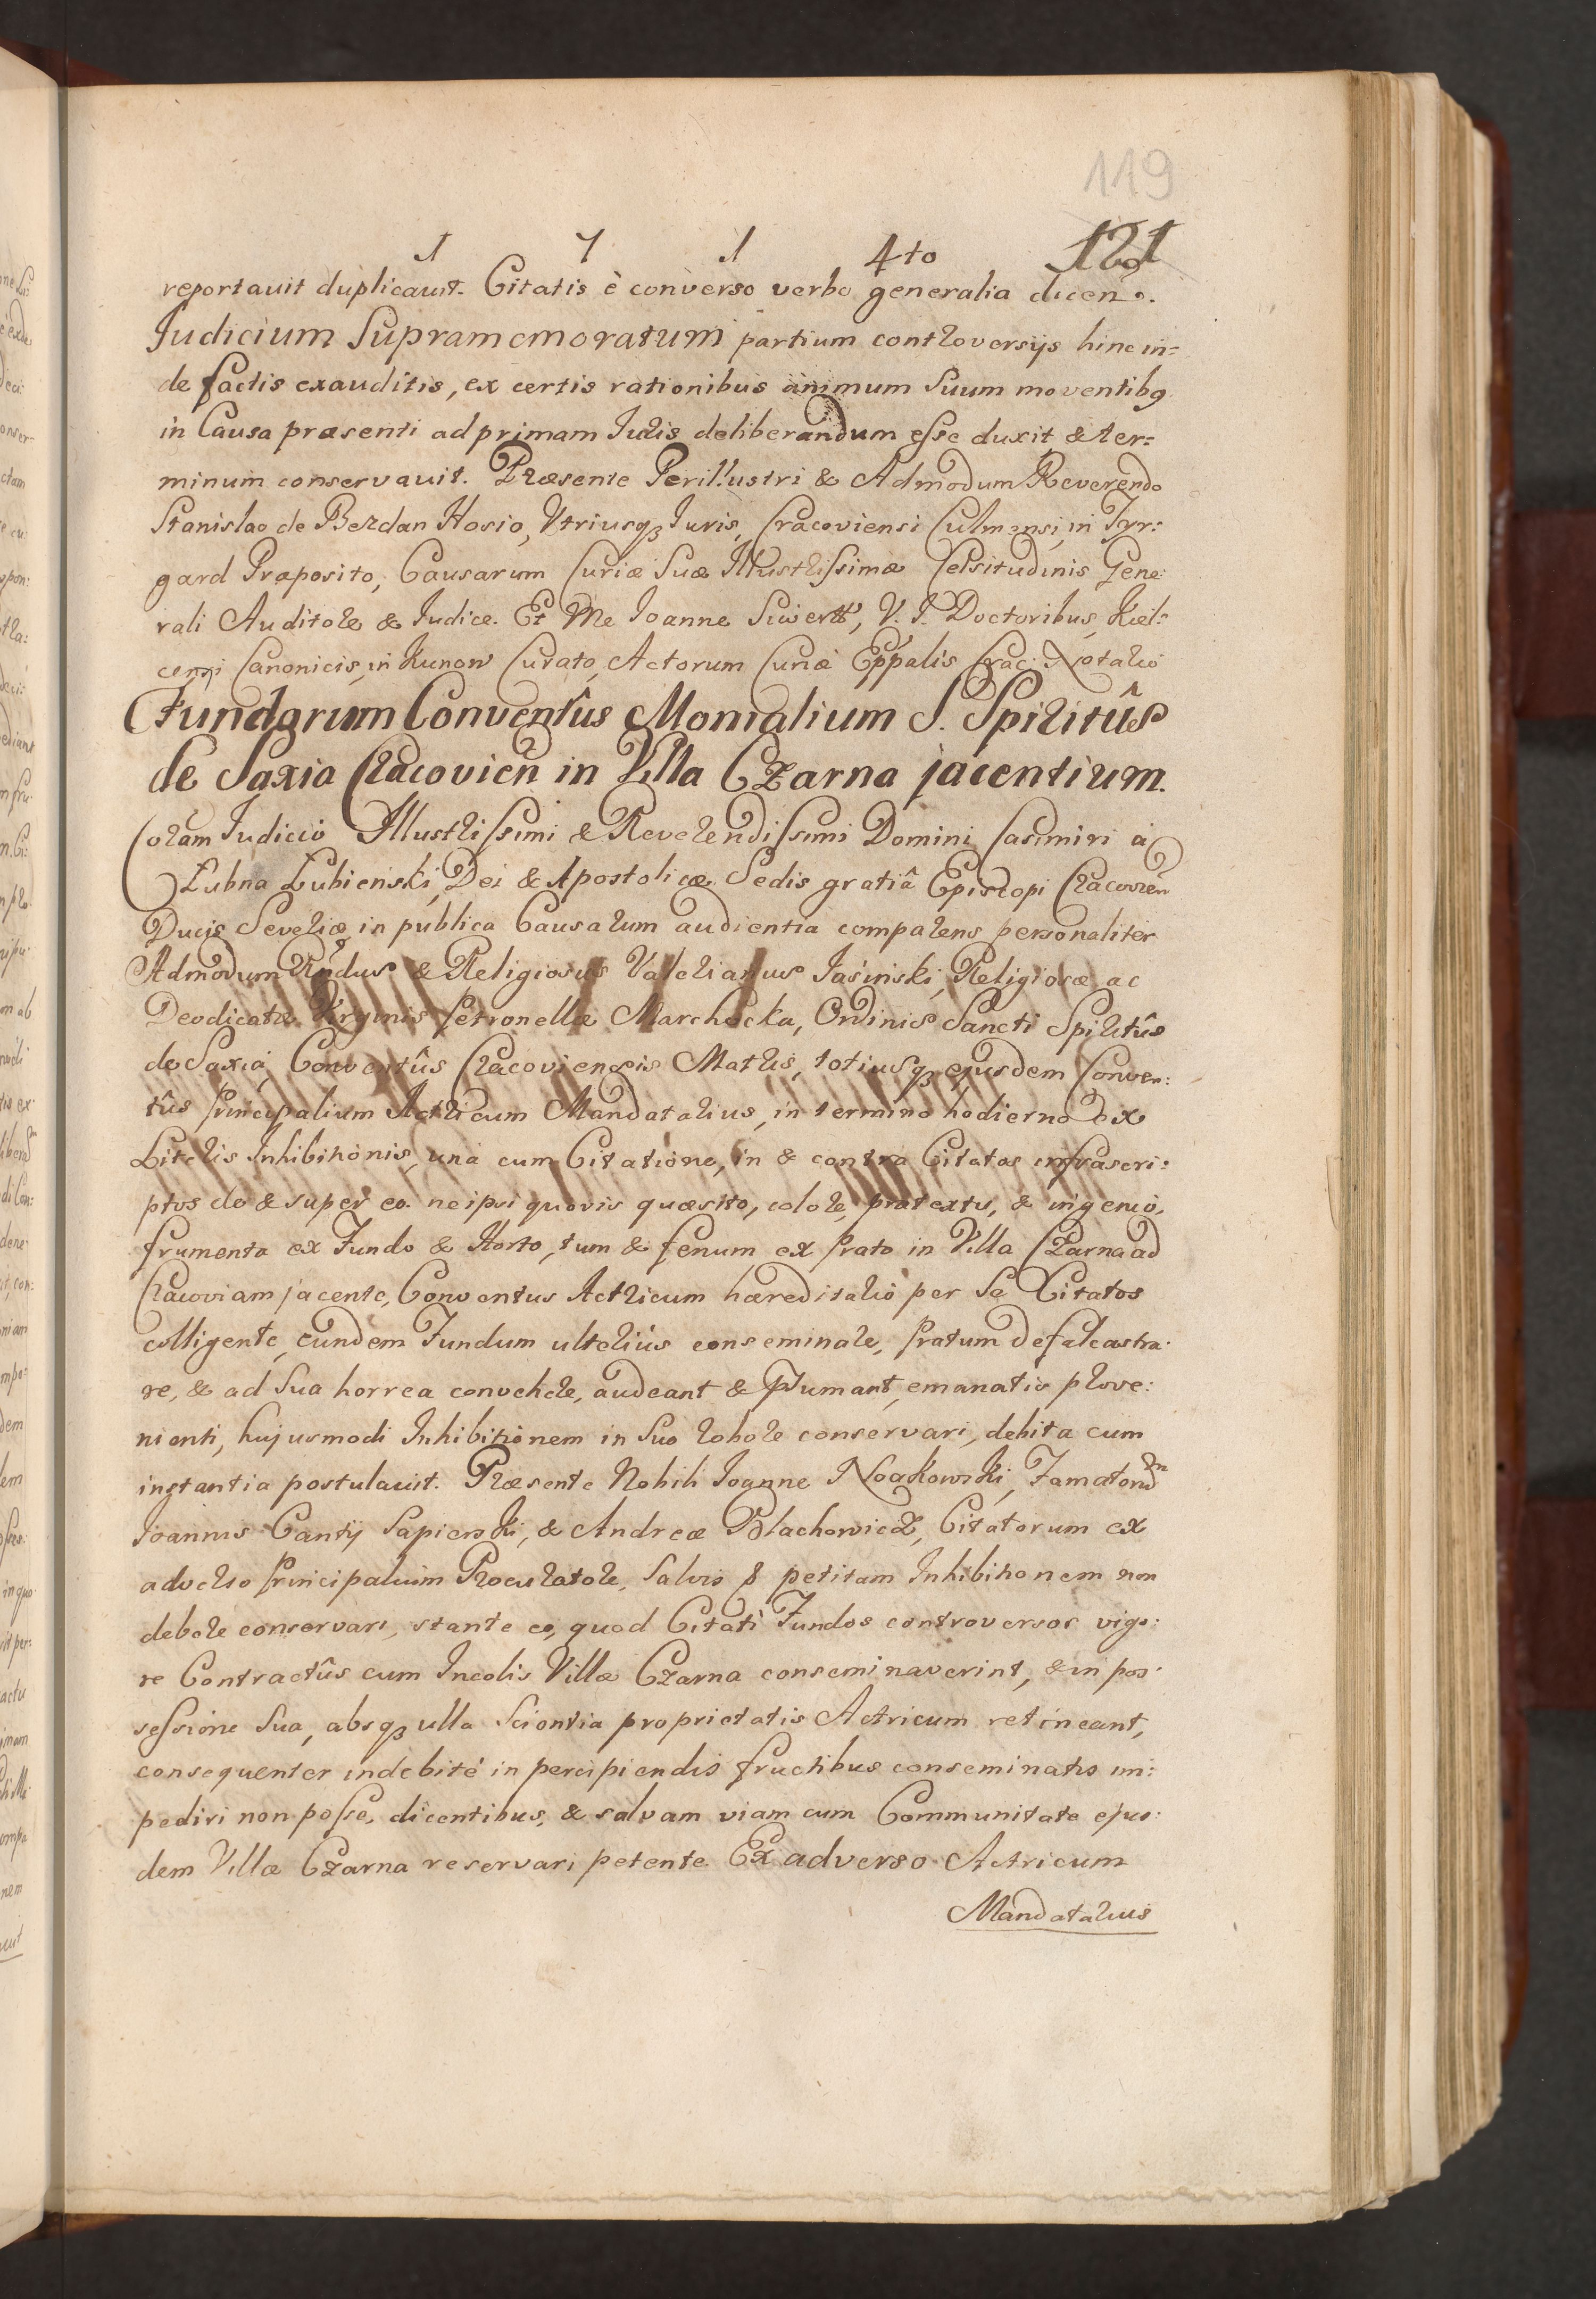 119
1 7 1 4to 121
reportauit duplicauit. Citatis è converso verbo generalia dicen:
Judicium Supramemoratum partium controversijs hinc in=
de factis exauditis, ex certis rationibus animum Suum moventibq
in Causa præsenti ad primam Iuris deliberandum esse duxit & ter=
minum conservauit. Præsente Perillustri & Admodum Reverendo
Stanislao de Bezdan Hosio, Vtriusq; Iuris, Cracoviensi Culmensi, in Jyr=
gard Præposito, Causarum Curiæ Suæ Illustrissimæ Celsitudinis Gene:
rali Auditore & Iudice. Et Me Ioanne Siwertt, V. I. Doctoribus, Kiel=
censi Canonicis, in Kunow Curato, Actorum Curiæ Eppalis Crac: Notario
Fundorum Conventûs Monialium S. Spiritûs
de Saxia Cracovien in Villa Czarna jacentium.
Coram Iudicio Illustrissimi & Reverendissimi Domini Casimiri à
Łubna Łubienski, Dei & Apostolicæ Sedis gratiâ Episcopi Cracovien
Ducis Severiæ, in publica Causarum audientia comparens personaliter
Admodum Rndus & Religiosus Valerianus Jasinski, Religiosæ ac
Deodicatæ Virginis Petronellæ Marchocka, Ordinis Sancti Spiritûs
de Saxia, Conventûs Cracoviensis Matris, totiusq; ejusdem Conven:
tûs Principalium Actricum Mandatarius, in termino hodierno ex
Literis Inhibitionis, unà cum Citatione, in & contra Citatos infrascri:
ptos de & super eo. ne ipsi quovis quæsito, colore, prætextu, & ingenio,
frumenta ex Fundo & Horto, tum & fenum ex Prato in Villa Czarna ad
Cracoviam jacente, Conventus Actricum hæreditario per Se Citatos
colligente, eundem Fundum ulteriùs conseminare, Pratum defalcastra:
re, & ad Sua horrea convehere, audeant & psumant, emanatis prove:
nienti, hujusmodi Inhibitionem in Suo robore conservari, debita cum
instantia postulauit. Præsente Nobili Ioanne Noakowski, Famatorudm
Joannis Cantij Sapienski, & Andreæ Blachowicz, Citatorum ex
adverso Principalium Procuratore, Salvis petitam Inhibitionem non
debere conservari, stante eo, quod Citati Fundos controversos vigo:
re Contractûs cum Incolis Villæ Czarna conseminaverint, & in pos:
sessione Sua, absq; ulla Scientia proprietatis Actricum retineant,
consequenter indebitè in percipiendis fructibus conseminatis im:
pediri non posse, dicentibus, & salvam viam cum Communitate ejus:
dem Villæ Czarna reservari petente. Ex adverso Actricum
Mandatarius